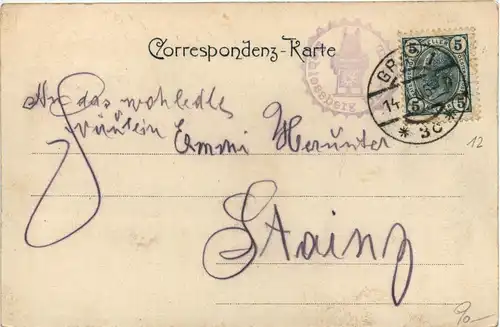 Correspondenz-Karte
5 HELLER 5
5 5
GR
Schlossberg
14
* 3c *
An das wohledle
Fräulein Emmi Herunter
Stainz
12